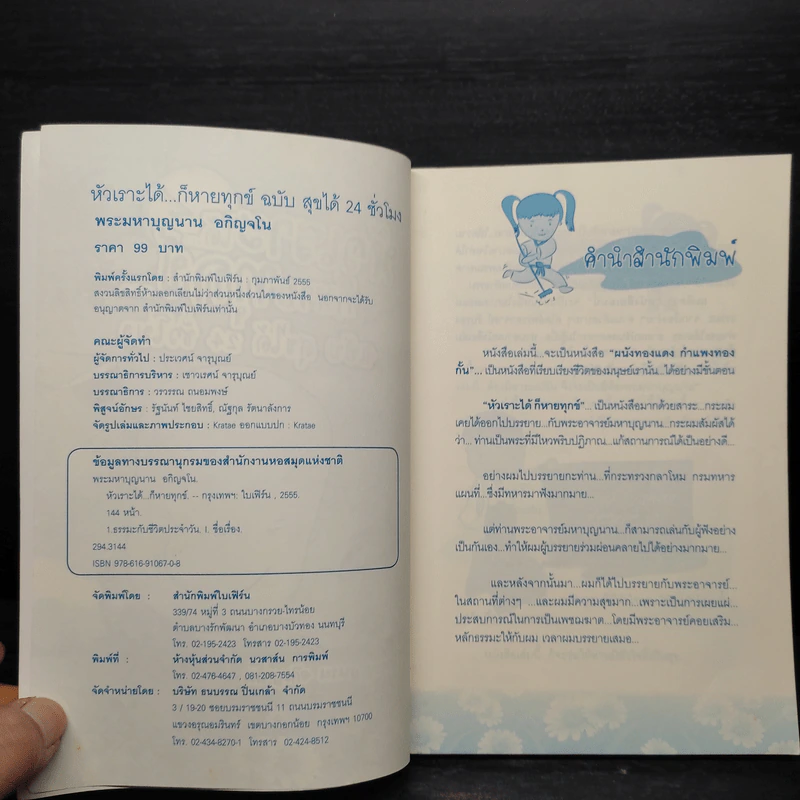 หัวเราะได้...ก็หายทุกข์ ฉบับ สุขได้ 24 ชั่วโมง
พระมหาบุญนาน อกิญจโน
ราคา 99 บาท
พิมพ์ครั้งแรกโดย : สำนักพิมพ์ใบเฟิร์น : กุมภาพันธ์ 2555
สงวนลิขสิทธิ์ห้ามลอกเลียนไม่ว่าส่วนหนึ่งส่วนใดของหนังสือ นอกจากจะได้รับ
อนุญาตจาก สำนักพิมพ์ใบเฟิร์นเท่านั้น
คณะผู้จัดทำ
ผู้จัดการทั่วไป : ประเวศน์ จารุบุณย์
บรรณาธิการบริหาร : เชาวเรศน์ จารุบุณย์
บรรณาธิการ : วรวรรณ ถนอมพงษ์
พิสูจน์อักษร : รัฐนันท์ ไชยสิทธิ์, ณัฐกุล รัตนาลังการ
จัดรูปเล่มและภาพประกอบ : Kratae ออกแบบปก : Kratae
ข้อมูลทางบรรณานุกรมของสำนักงานหอสมุดแห่งชาติ
พระมหาบุญนาน อกิญจโน.
หัวเราะได้...ก็หายทุกข์. -- กรุงเทพฯ: ใบเฟิร์น , 2555.
144 หน้า.
1.ธรรมะกับชีวิตประจำวัน. I. ชื่อเรื่อง.
294.3144
ISBN 978-616-91067-0-8
จัดพิมพ์โดย : สำนักพิมพ์ใบเฟิร์น
339/74 หมู่ที่ 3 ถนนบางกรวย-ไทรน้อย
ตำบลบางรักพัฒนา อำเภอบางบัวทอง นนทบุรี
โทร. 02-195-2423 โทรสาร 02-195-2423
พิมพ์ที่ : ห้างหุ้นส่วนจำกัด นวสาส์น การพิมพ์
โทร. 02-476-4647 , 081-208-7554
จัดจำหน่ายโดย : บริษัท ธนบรรณ ปิ่นเกล้า จำกัด
3 / 19-20 ซอยบรมราชชนนี 11 ถนนบรมราชชนนี
แขวงอรุณอมรินทร์ เขตบางกอกน้อย กรุงเทพฯ 10700
โทร. 02-434-8270-1 โทรสาร 02-424-8512
คำนำสำนักพิมพ์
หนังสือเล่มนี้...จะเป็นหนังสือ “ผนังทองแดง กำแพงทอง
กั้น”... เป็นหนังสือที่เรียบเรียงชีวิตของมนุษย์เรานั้น...ได้อย่างมีขั้นตอน
“หัวเราะได้ ก็หายทุกข์”... เป็นหนังสือมากด้วยสาระ... กระผม
เคยได้ออกไปบรรยาย ...กับพระอาจารย์มหาบุญนาน...กระผมสัมผัสได้
ว่า... ท่านเป็นพระที่มีไหวพริบปฏิภาณ...แก้สถานการณ์ได้เป็นอย่างดี...
อย่างผมไปบรรยายกะท่าน ...ที่กระทรวงกลาโหม กรมทหาร
แผนที่...ซึ่งมีทหารมาฟังมากมาย...
แต่ท่านพระอาจารย์มหาบุญนาน...ก็สามารถเล่นกับผู้ฟังอย่าง
เป็นกันเอง...ทำให้ผมผู้บรรยายร่วมผ่อนคลายไปได้อย่างมากมาย...
และหลังจากนั้นมา... ผมก็ได้ไปบรรยายกับพระอาจารย์...
ในสถานที่ต่างๆ ...และผมมีความสุขมาก...เพราะเป็นการเผยแผ่...
ประสบการณ์ในการเป็นเพชฌฆาต...โดยมีพระอาจารย์คอยเสริม...
หลักธรรมะให้กับผม เวลาผมบรรยายเสมอ...